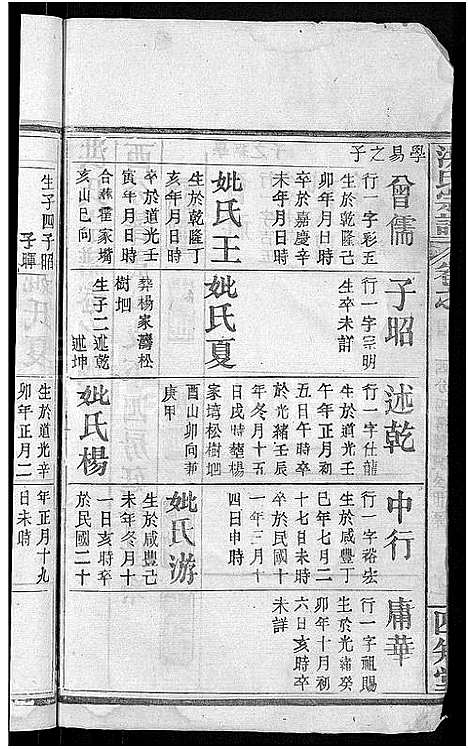 學易之子
曾儒
行一字彩玉
生於乾隆己
卯年月日時
卒於嘉慶辛
未年月日時
妣氏王
生於乾隆丁
亥年月日時
卒於道光壬
寅年月日時
合葬霍家塆
亥山巳向
子昭
行一字宗明
生卒未詳
妣氏夏
葬楊家灣松
樹垇
生子二述乾
述坤
述乾
行一字仕龍
生於道光壬
午年正月初
五日午時卒
於光緒壬辰
年冬月十五
日戌時塟楊
家塆松樹垇
酉山卯向兼
庚甲
妣氏楊
中行
行一字裕宏
生於咸豐丁
巳年七月二
十七日未時
卒於民國十
一年三月十
四日申時
妣氏游
生於咸豐己
未年冬月十
一日亥時卒
於民國二十
庸華
行一字祖賜
生於光緒癸
卯年十月初
六日亥時卒
未詳
氏宗譜
四知堂
生子四子昭
子暉
生於道光辛
卯年正月二
年正月十九
日未時